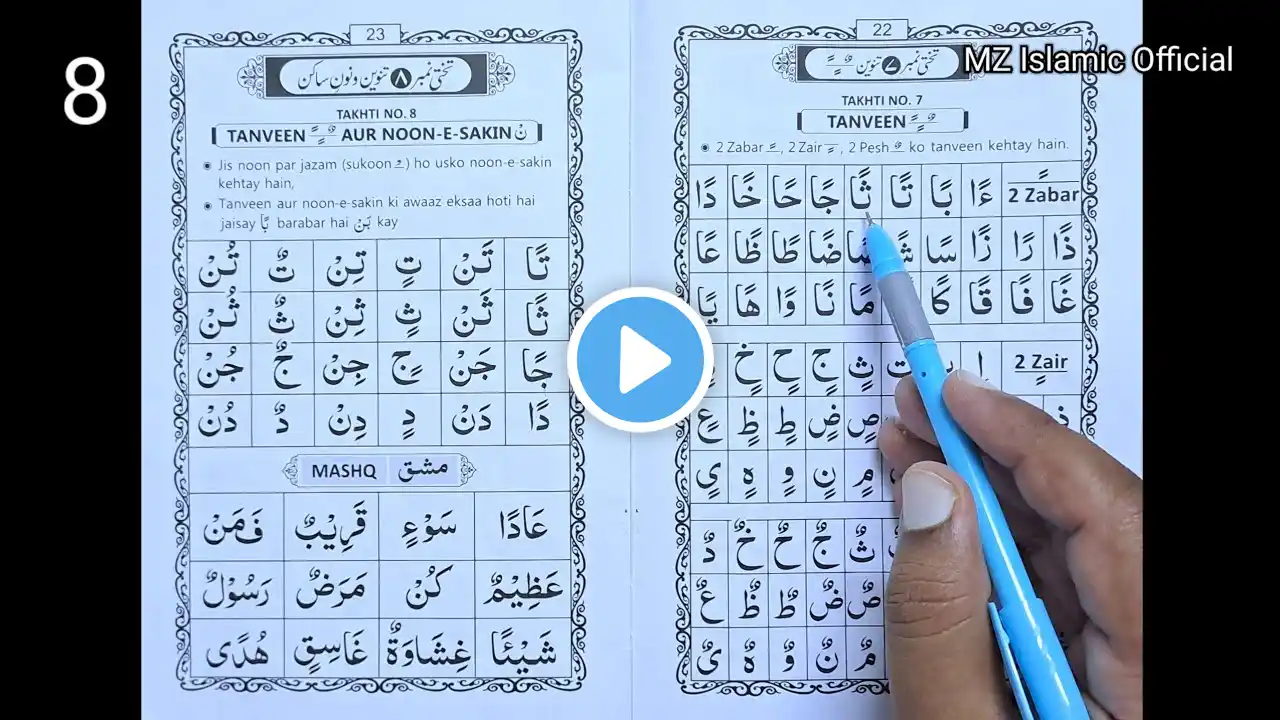 8
MZ Islamic Official
23
تختی نمبر ۸ تنوین و نون ساکن
TAKHTI NO. 8
TANVEEN ـًـٍـٌ AUR NOON-E-SAKIN نْ
Jis noon par jazam (sukoon ـْ) ho usko noon-e-sakin
kehtay hain,
Tanveen aur noon-e-sakin ki awaaz eksaa hoti hai
jaisay بًا barabar hai بَنْ kay
تًا تَنْ تٍ تِنْ تٌ تُنْ
ثًا ثَنْ ثٍ ثِنْ ثٌ ثُنْ
جًا جَنْ جٍ جِنْ جٌ جُنْ
دًا دَنْ دٍ دِنْ دٌ دُنْ
MASHQ مشق
عَادًا سَوْءٍ قَرِيْبٌ فَمَنْ
عَظِيْمٌ كُنْ مَرَضٌ رَسُوْلٌ
شَيْئًا غِشَاوَةٌ غَاسِقٍ هُدًى
22
تختی نمبر ۷ تنوین ـًـٍـٌ
TAKHTI NO. 7
TANVEEN ـًـٍـٌ
2 Zabar ـً, 2 Zair ـٍ, 2 Pesh ـٌ ko tanveen kehtay hain.
2 Zabar ءًا بًا تًا ثًا جًا حًا خًا دًا
ذًا رًا زًا سًا شًا صًا ضًا طًا ظًا عًا
غًا فًا قًا كًا مًا نًا وًا هًا يًا
2 Zair ثٍ جٍ حٍ خٍ
صٍ ضٍ طٍ ظٍ عٍ
مٍ نٍ وٍ هٍ يٍ
ثٌ جٌ حٌ خٌ دٌ
صٌ ضٌ طٌ ظٌ عٌ
مٌ نٌ وٌ هٌ يٌ